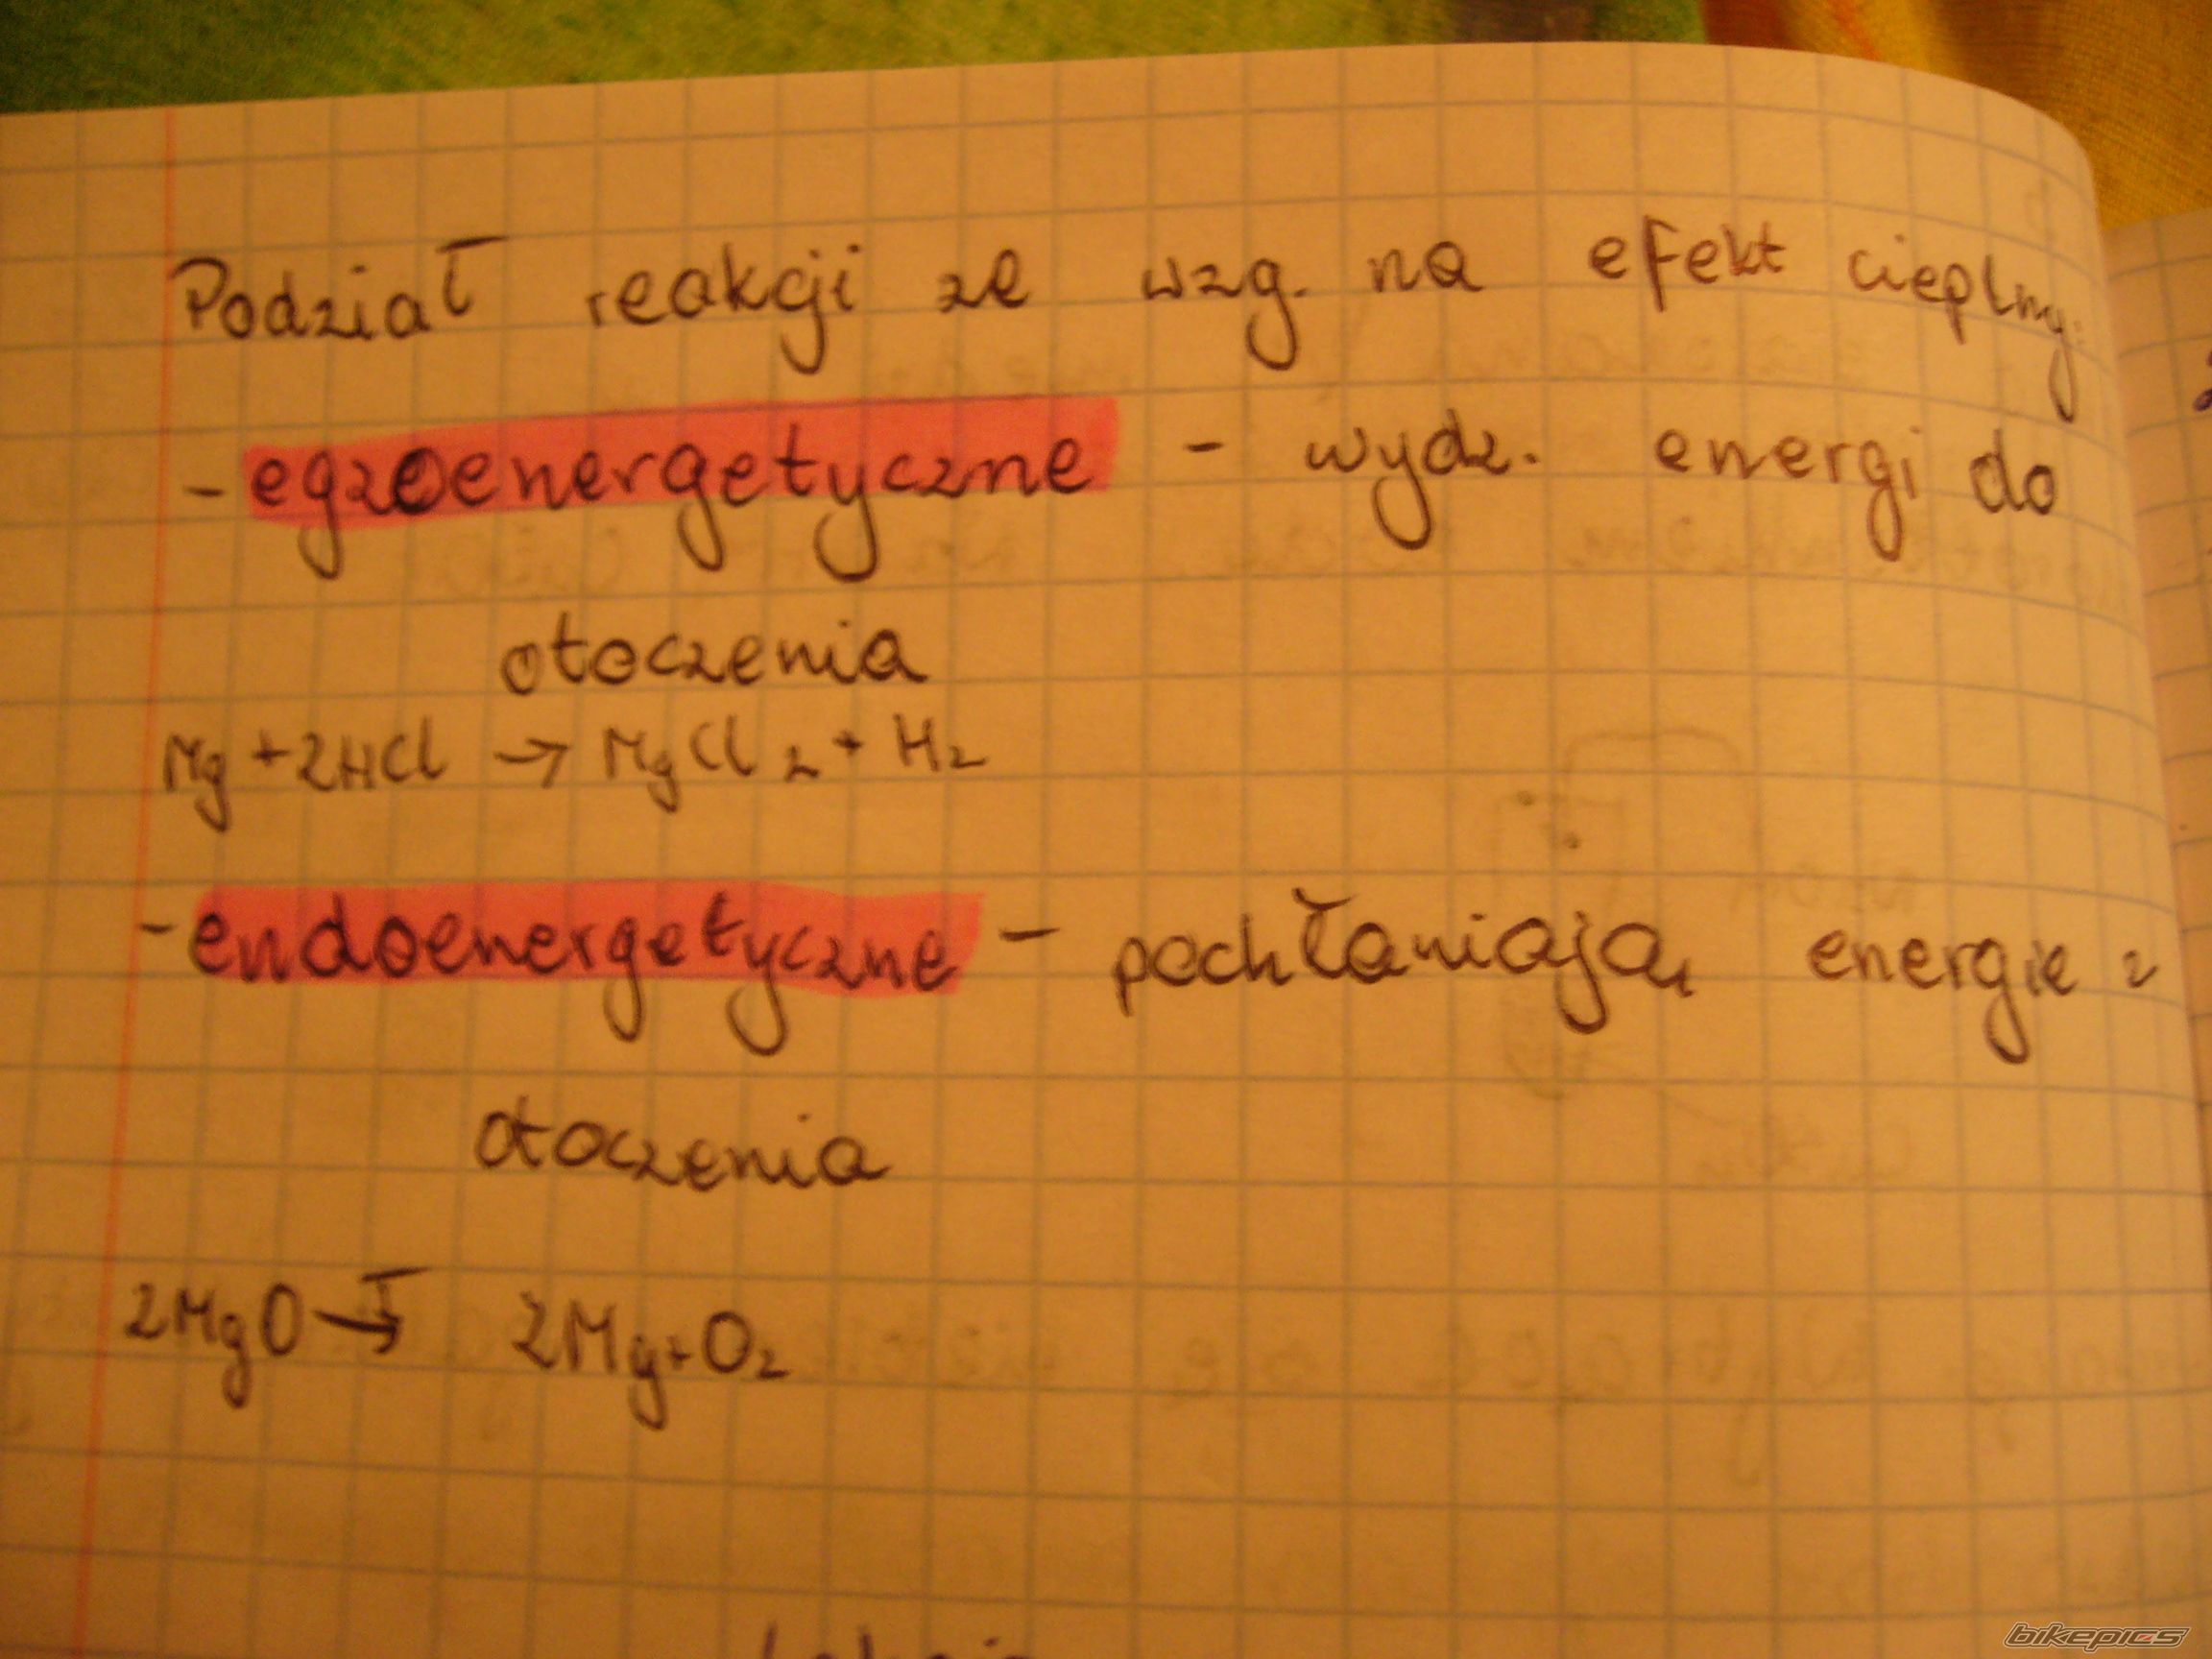 Podział reakcji ze wzg. na efekt cieplny:
- egzoenergetyczne - wydz. energi do
otoczenia
Mg + 2HCl → MgCl2 + H2
- endoenergetyczne - pochłaniają energie z
otoczenia
2MgO →T 2Mg + O2
bikepics